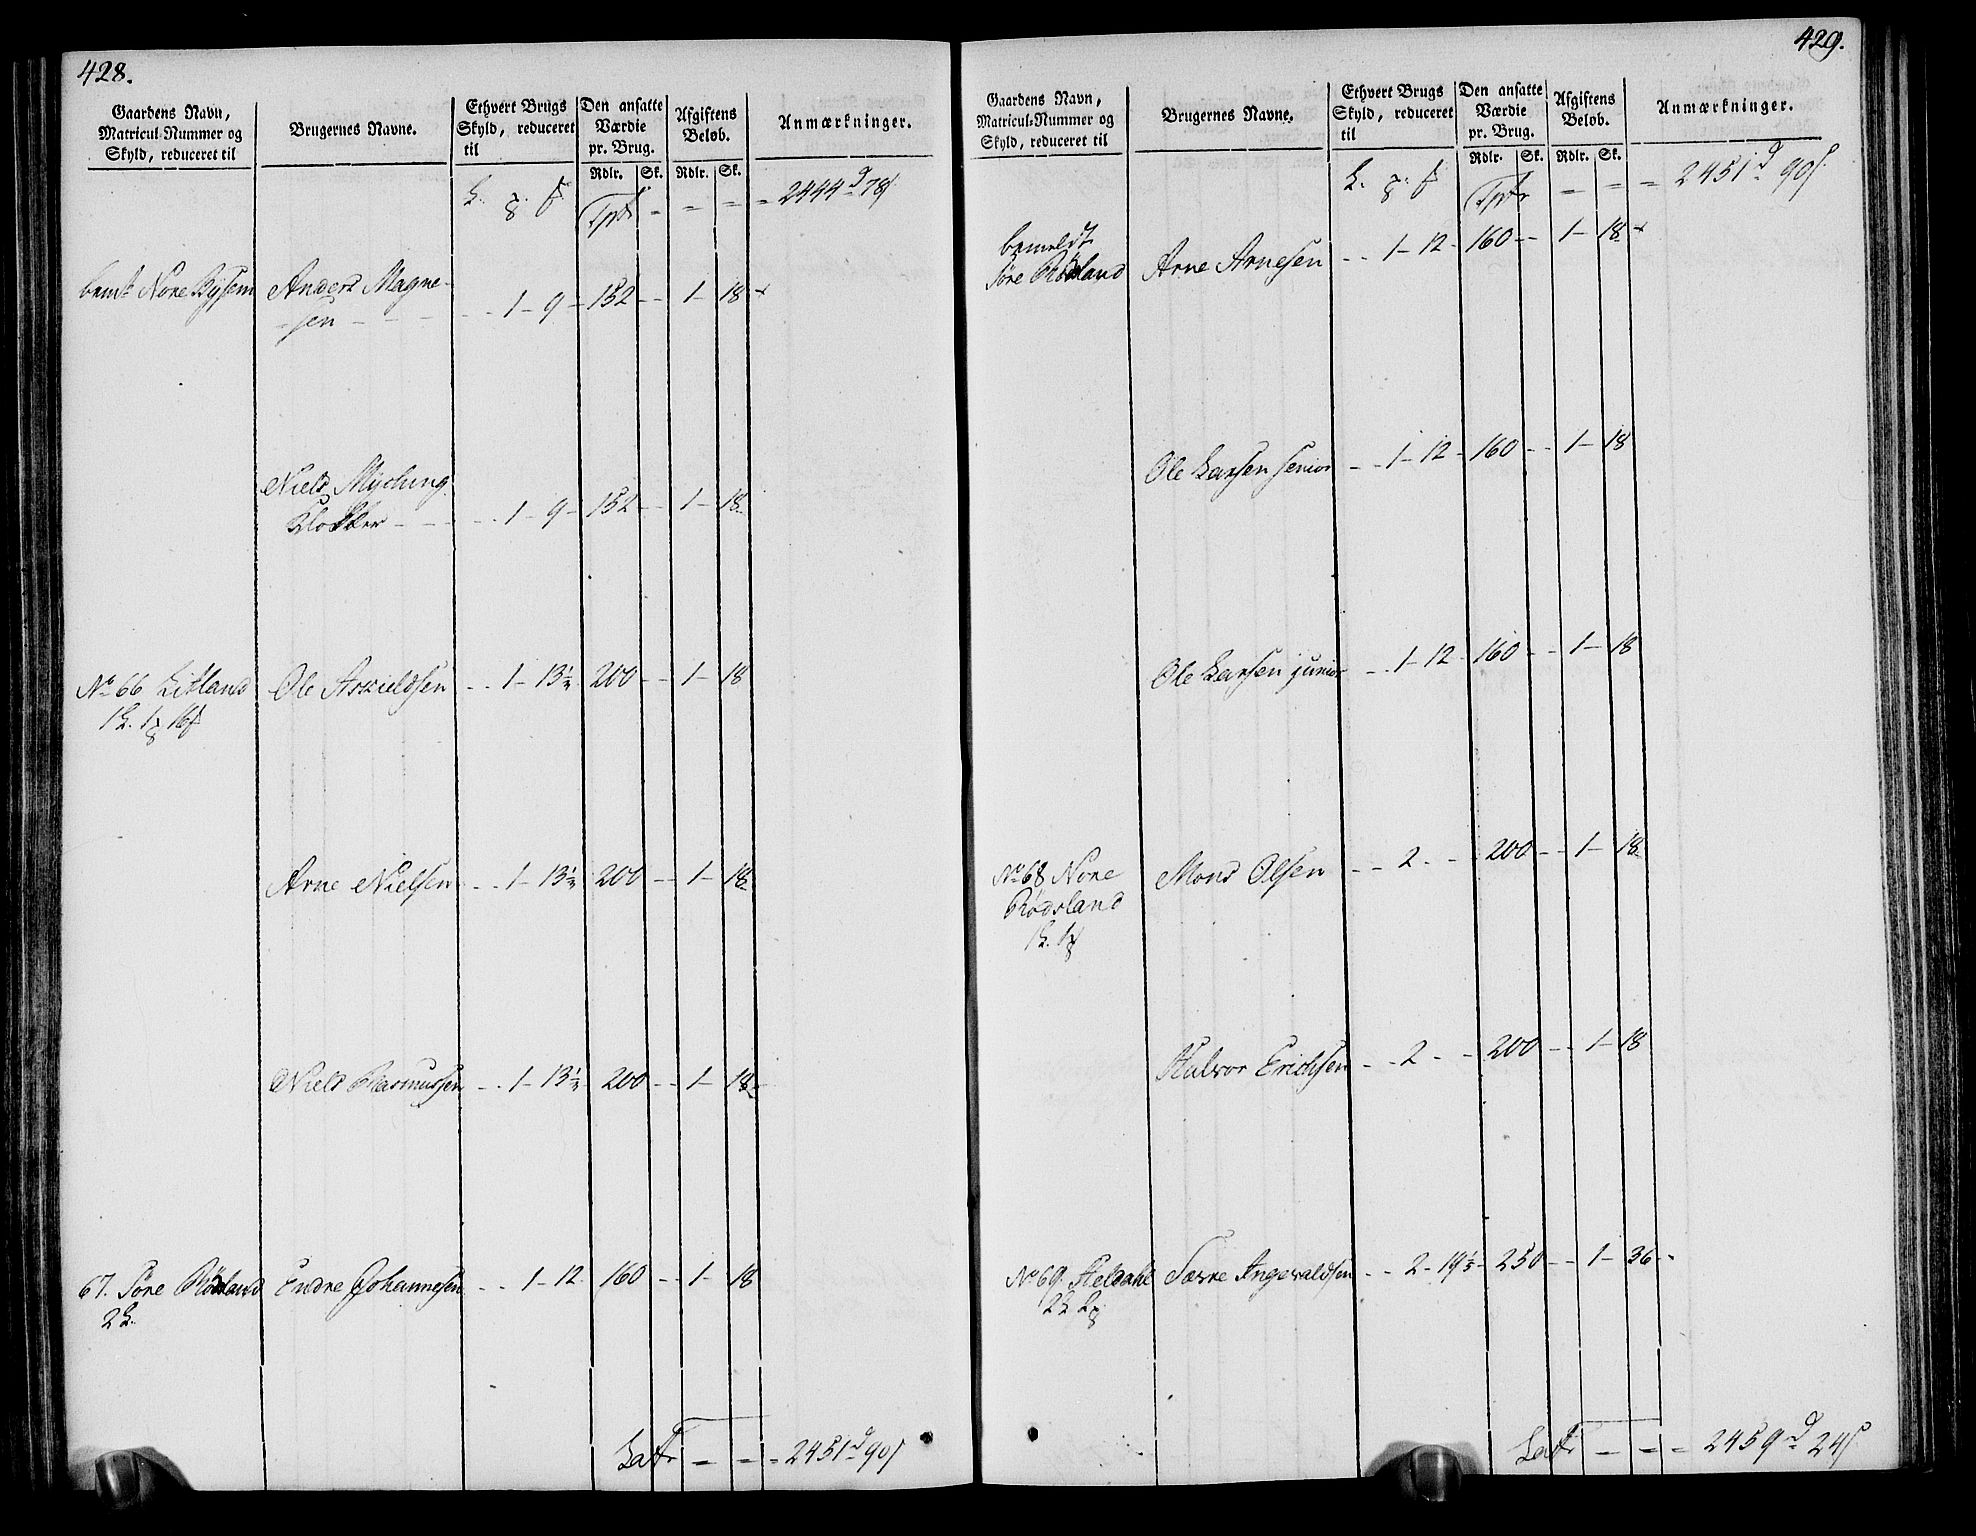 428.
Gaardens Navn, Matricul-Nummer og Skyld, reduceret til
Brugernes Navne.
Ethvert Brugs Skyld, reduceret til
Den ansatte Værdie pr. Brug.
Afgiftens Beløb.
Anmærkninger.
Rdlr. Sk. Rdlr. Sk.
Tpt = = = 2444 d 78 ß
bemt Nore Bysem Anders Magne-
sen - - - 1 - 9 - 152 - - 1 - 18
Niels Myching
Klokker - - - 1 - 9 - 152 - - 1 - 18
No 66 Litland Ole Askieldsen - - 1 - 13 1/3 200 - - 1 - 18
Arne Nielsen - - 1 - 13 1/3 200 - - 1 - 18
Niels Rasmussen - - 1 - 13 1/3 200 - - 1 - 18
67. Søre Rødsland Endre Johannesen - - 1 - 12 160 - - 1 - 18
Latr = = = 2451 d 90 ß
429.
Gaardens Navn, Matricul-Nummer og Skyld, reduceret til
Brugernes Navne.
Ethvert Brugs Skyld, reduceret til
Den ansatte Værdie pr. Brug.
Afgiftens Beløb.
Anmærkninger.
Rdlr. Sk. Rdlr. Sk.
Tptr = = = 2451 d 90 ß
bemeldt
Søre Rødsland Arne Arnesen - - 1 - 12 - 160 - - 1 - 18
Ole Larsen senior - - 1 - 12 - 160 - - 1 - 18
Ole Larsen junior - - 1 - 12 - 160 - - 1 - 18
No 68 Nore Mons Olsen - - 2 - - 200 - - 1 - 18
Rødsland
Halvor Erichsen - - 2 - - 200 - - 1 - 18
No 69. Heldahl Tarne Ingevaldsen - - 2 - 19 1/5 - 250 - - 1 - 36
Latr = = = 2459 d 24 ß